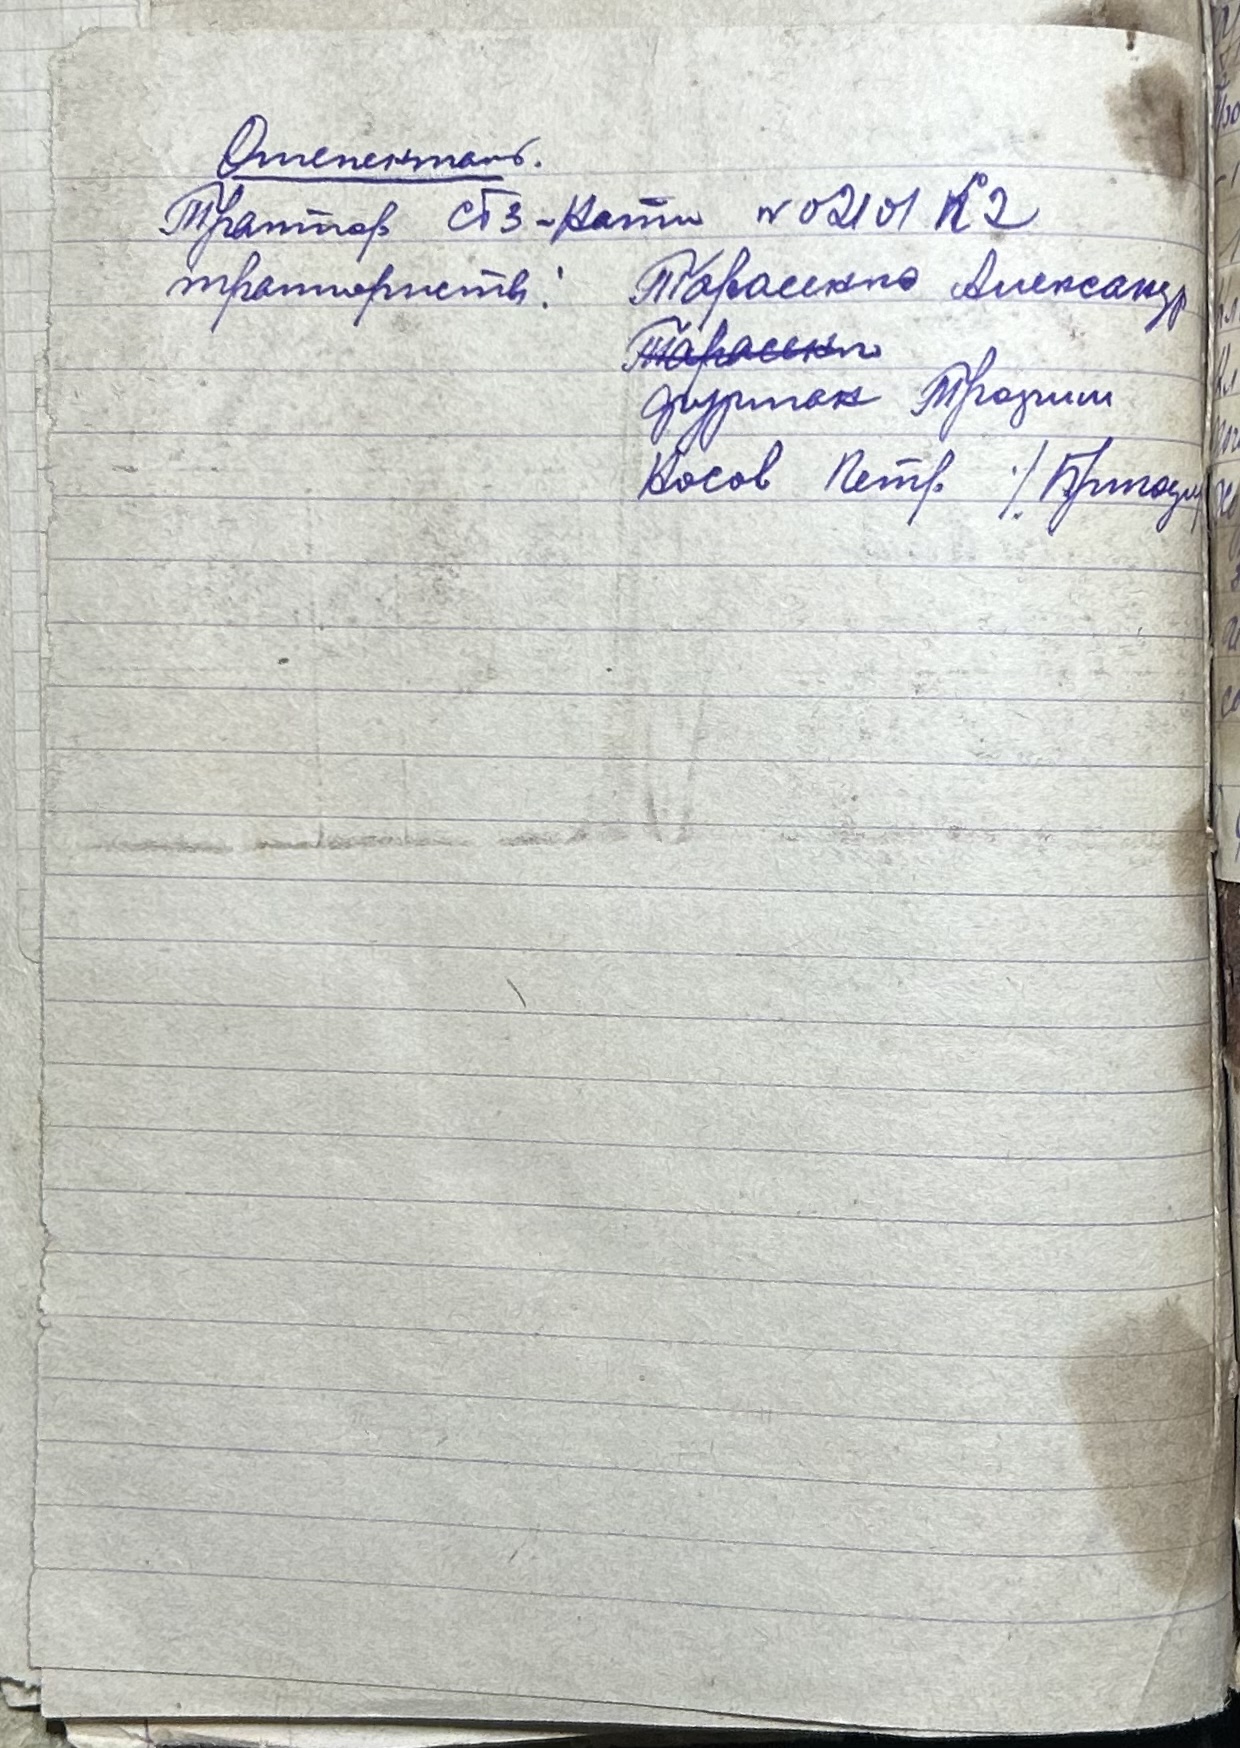 Трактор СТЗ-Нати № 02101 К2
трактористы: Тарасенко Александр
Тарасенко
Трофим
Носов Петр /Бригадир